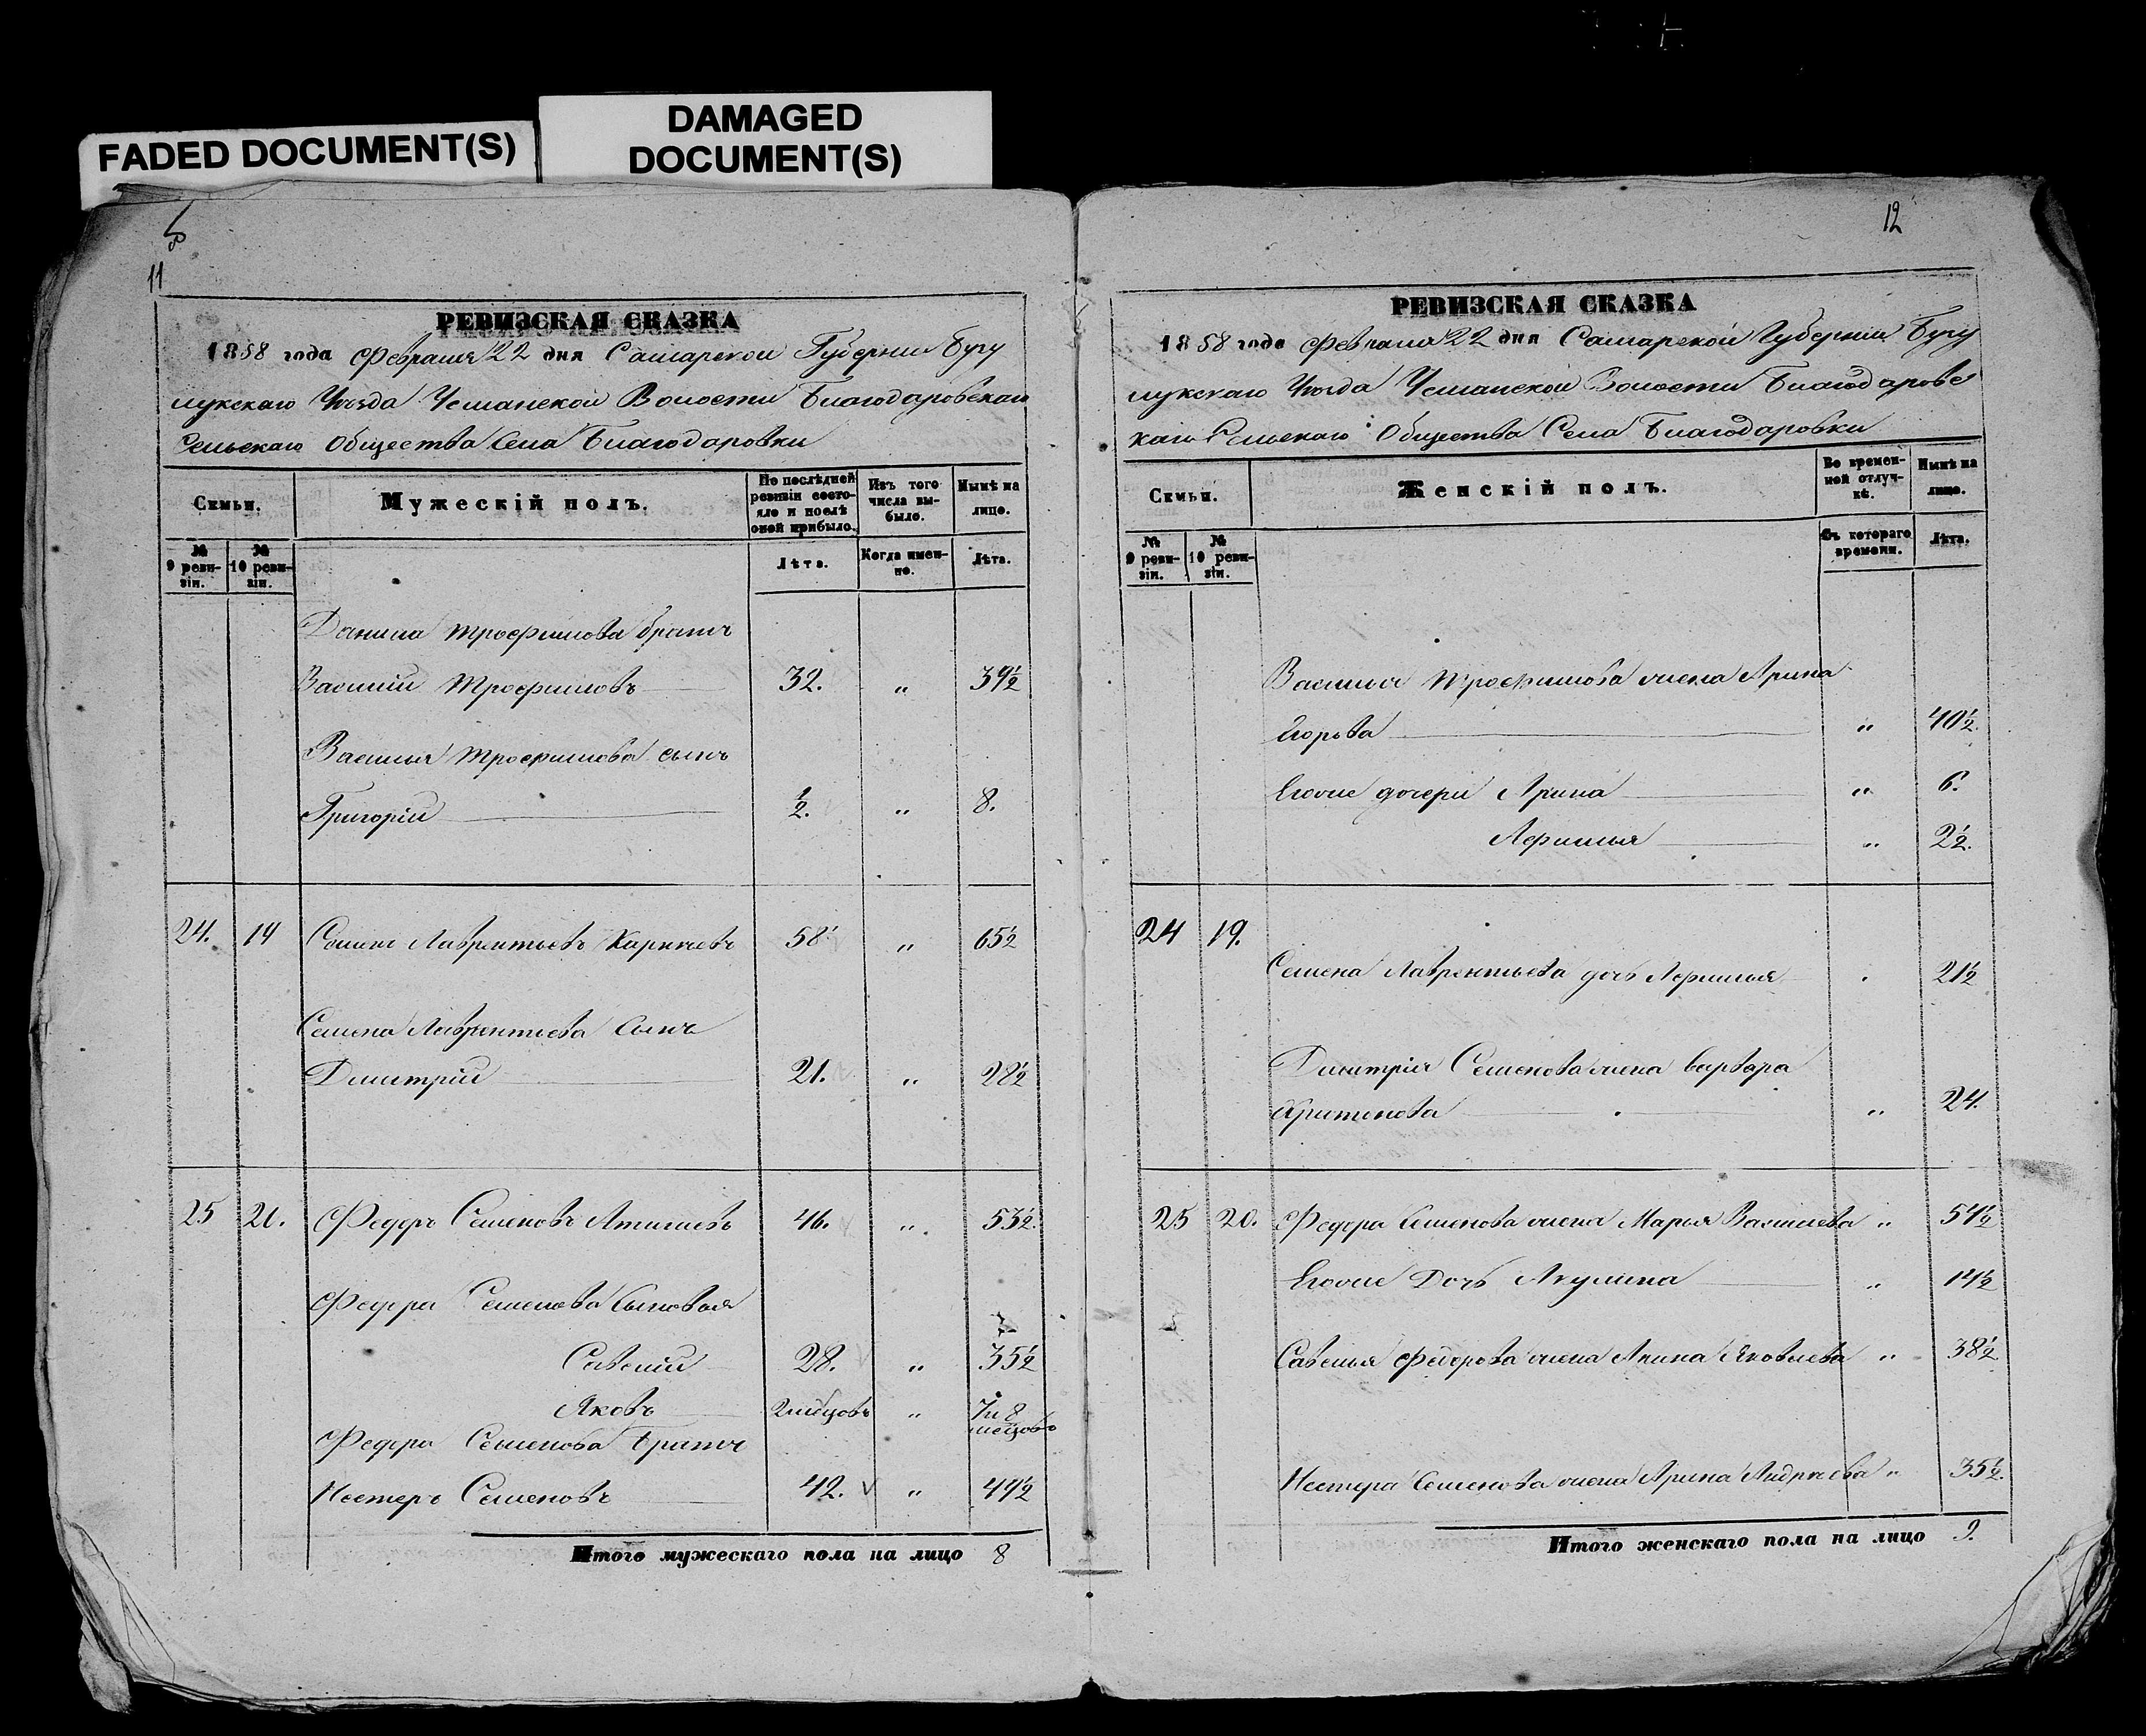 FADED DOCUMENT(S)
DAMAGED
DOCUMENT(S)
11
РЕВИЗСКАЯ СКАЗКА
1858 года Февраля 22 дня Самарской Губернии Бугу
лукскаго Уѣзда Усманской Волости Благодаровскаго
Сельскаго Общества Села Благодаровки
Семьи.
Мужескій полъ.
По послѣдней ревизіи состояло и послѣ оной прибыло.
Изъ того числа выбыло.
Нынѣ на лицо.
№ 9 ревизіи.
№ 10 ревизіи.
Лѣта.
Когда именно.
Лѣта.
Данила Трофимова братъ
Василій Трофимовъ 32. „ 39½
Василья Трофимова сынъ
Григорій ½. „ 8.
24. 19 Семенъ Лаврентьевъ 58. „ 65½
Семена Лаврентьева Сынъ
Димитрій 21. „ 28½
25 20. Федоръ Семеновъ 46. „ 53½
Федора Семенова Сыновья
Савелій 28. „ 35½
Яковъ 2 мѣсцовъ „ 7 и 8 мѣсцовъ
Федора Семенова Братъ
Нестеръ Семеновъ 42. „ 49½
Итого мужескаго пола на лицо 8
12
РЕВИЗСКАЯ СКАЗКА
1858 года Февраля 22 дня Самарской Губерніи Бугу
лукскаго Уѣзда Усманской Волости Благодаровс
каго Сельскаго Общества Села Благодаровки
Семьи.
Женскій полъ.
Во временной отлучкѣ.
Нынѣ на лицо.
№ 9 ревизіи.
№ 10 ревизіи.
Съ котораго времени.
Лѣта.
Василья Трофимова жена Арина
Егорьва „ 40½.
Егоже дочери Арина „ 6.
Афимья „ 2½.
24 19.
Семена Лаврентьева дочь Афимья 21½
Димитрія Семенова жена варвара
„ 24.
25 20. Федора Семенова жена Марья Васильева „ 54½
Егоже Дочь Акулина „ 14½
Савелья Федорова жена Анна Яковлева „ 38½
Нестера Семенова жена Арина Андрѣева „ 35½.
Итого женскаго пола на лицо 9.